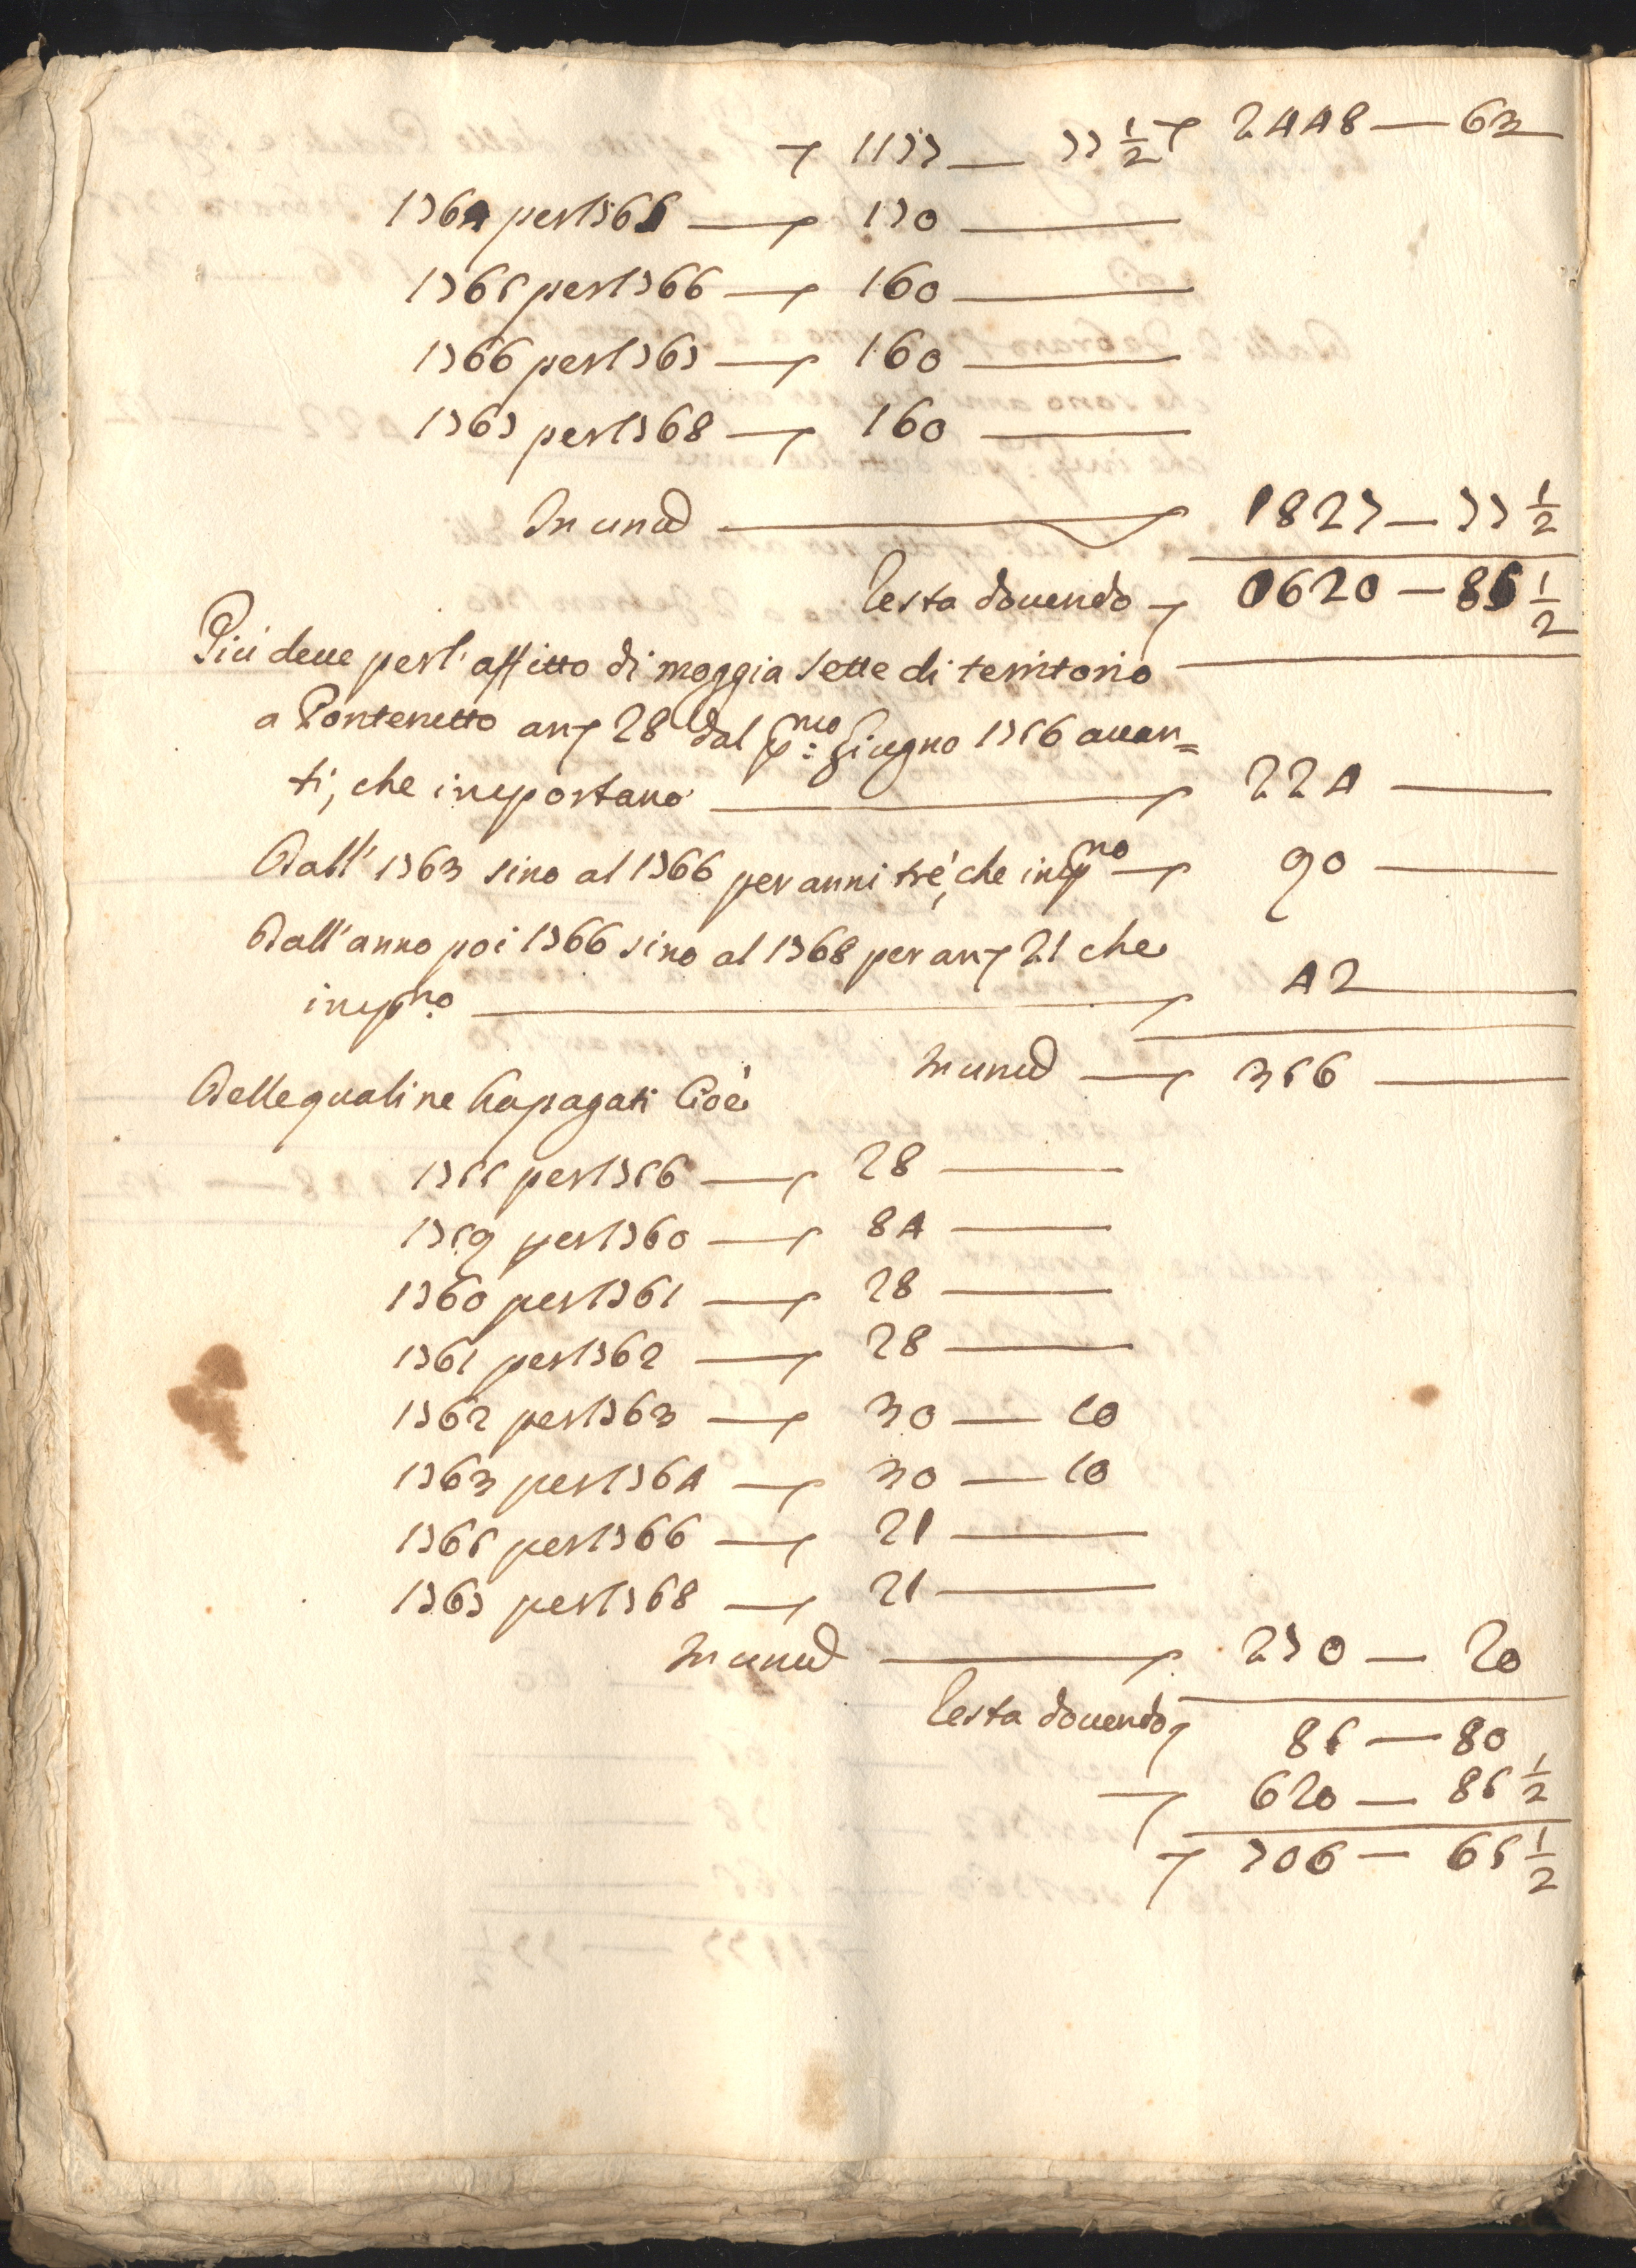 1177 — 77 ½ 2448 — 63
1764 per 1765 — 170 —
1765 per 1766 — 160 —
1766 per 1767 — 160 —
1767 per 1768 — 160 —
In unum — 1827 — 77 ½
Resta dovendo 0620 — 85 ½
Più deve per l'affitto di moggia sette di territorio —
a Pontenetto an 28 dal pmo: Giugno 1756 avan=
ti, che importano — 224 —
Dall' 1763 sino al 1766 per anni trè, che impno — 90 —
Dall'anno poi 1766 sino al 1768 per an 21 che
impno — 42 —
In unum — 356 —
Delle quali ne ha pagati Cioè
1755 per 1756 — 28 —
1759 per 1760 — 84 —
1760 per 1761 — 28 —
1761 per 1762 — 28 —
1762 per 1763 — 30 — 10
1763 per 1764 — 30 — 10
1765 per 1766 — 21 —
1767 per 1768 — 21 —
In unum — 270 — 20
Resta dovendo 85 — 80
— 620 — 85 ½
706 — 65 ½